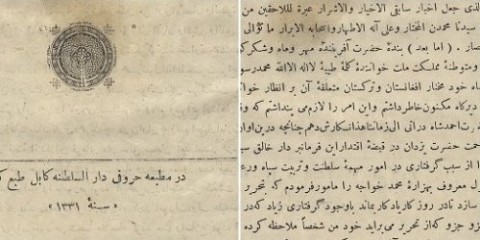 در مطبعه حروفی دار السلطنه کابل طبع
« سنهٔ ۱۳۳۱ »
لذی جعل اخبار سابقی الاخیار والاشرار عبرة للاحقین من
سیدنا محمدن المختار وعلی آله الاطهار واصحابه الابرار ما توالی
صار . ( اما بعد ) بندهٔ حضرت آفرینندهٔ مهر وماه وشکرک
ومتوطنهٔ مملکت ملت خوانندهٔ کلمهٔ طیبهٔ لااله الاالله محمدرسو
ماه خود مختار افغانستان وترکستان متعلقهٔ آن بر انظار خوا
دیرکاه مکنون خاطرداشتم واین امر را لازم می پنداشتم که وق
احمدشاه درانی الی زماننا هذا نکارش دهم چنانچه درین اوان
حمت حضرت یزدان در قبضهٔ اقتدار این فرمانبر دار خالق سب
ا از سبب گرفتاری در امور مهمهٔ سلطنت وتربیت سپاه ورع
ول معروف بهزارهٔ محمد خواجه را مامور فرمودم که تحریر
سازد نادر روز کار یاد کار بماند باوجود گرفتاری زیاد که در
زو جزو که از تحریر می براید خود من شخصاً ملاحظه کرده